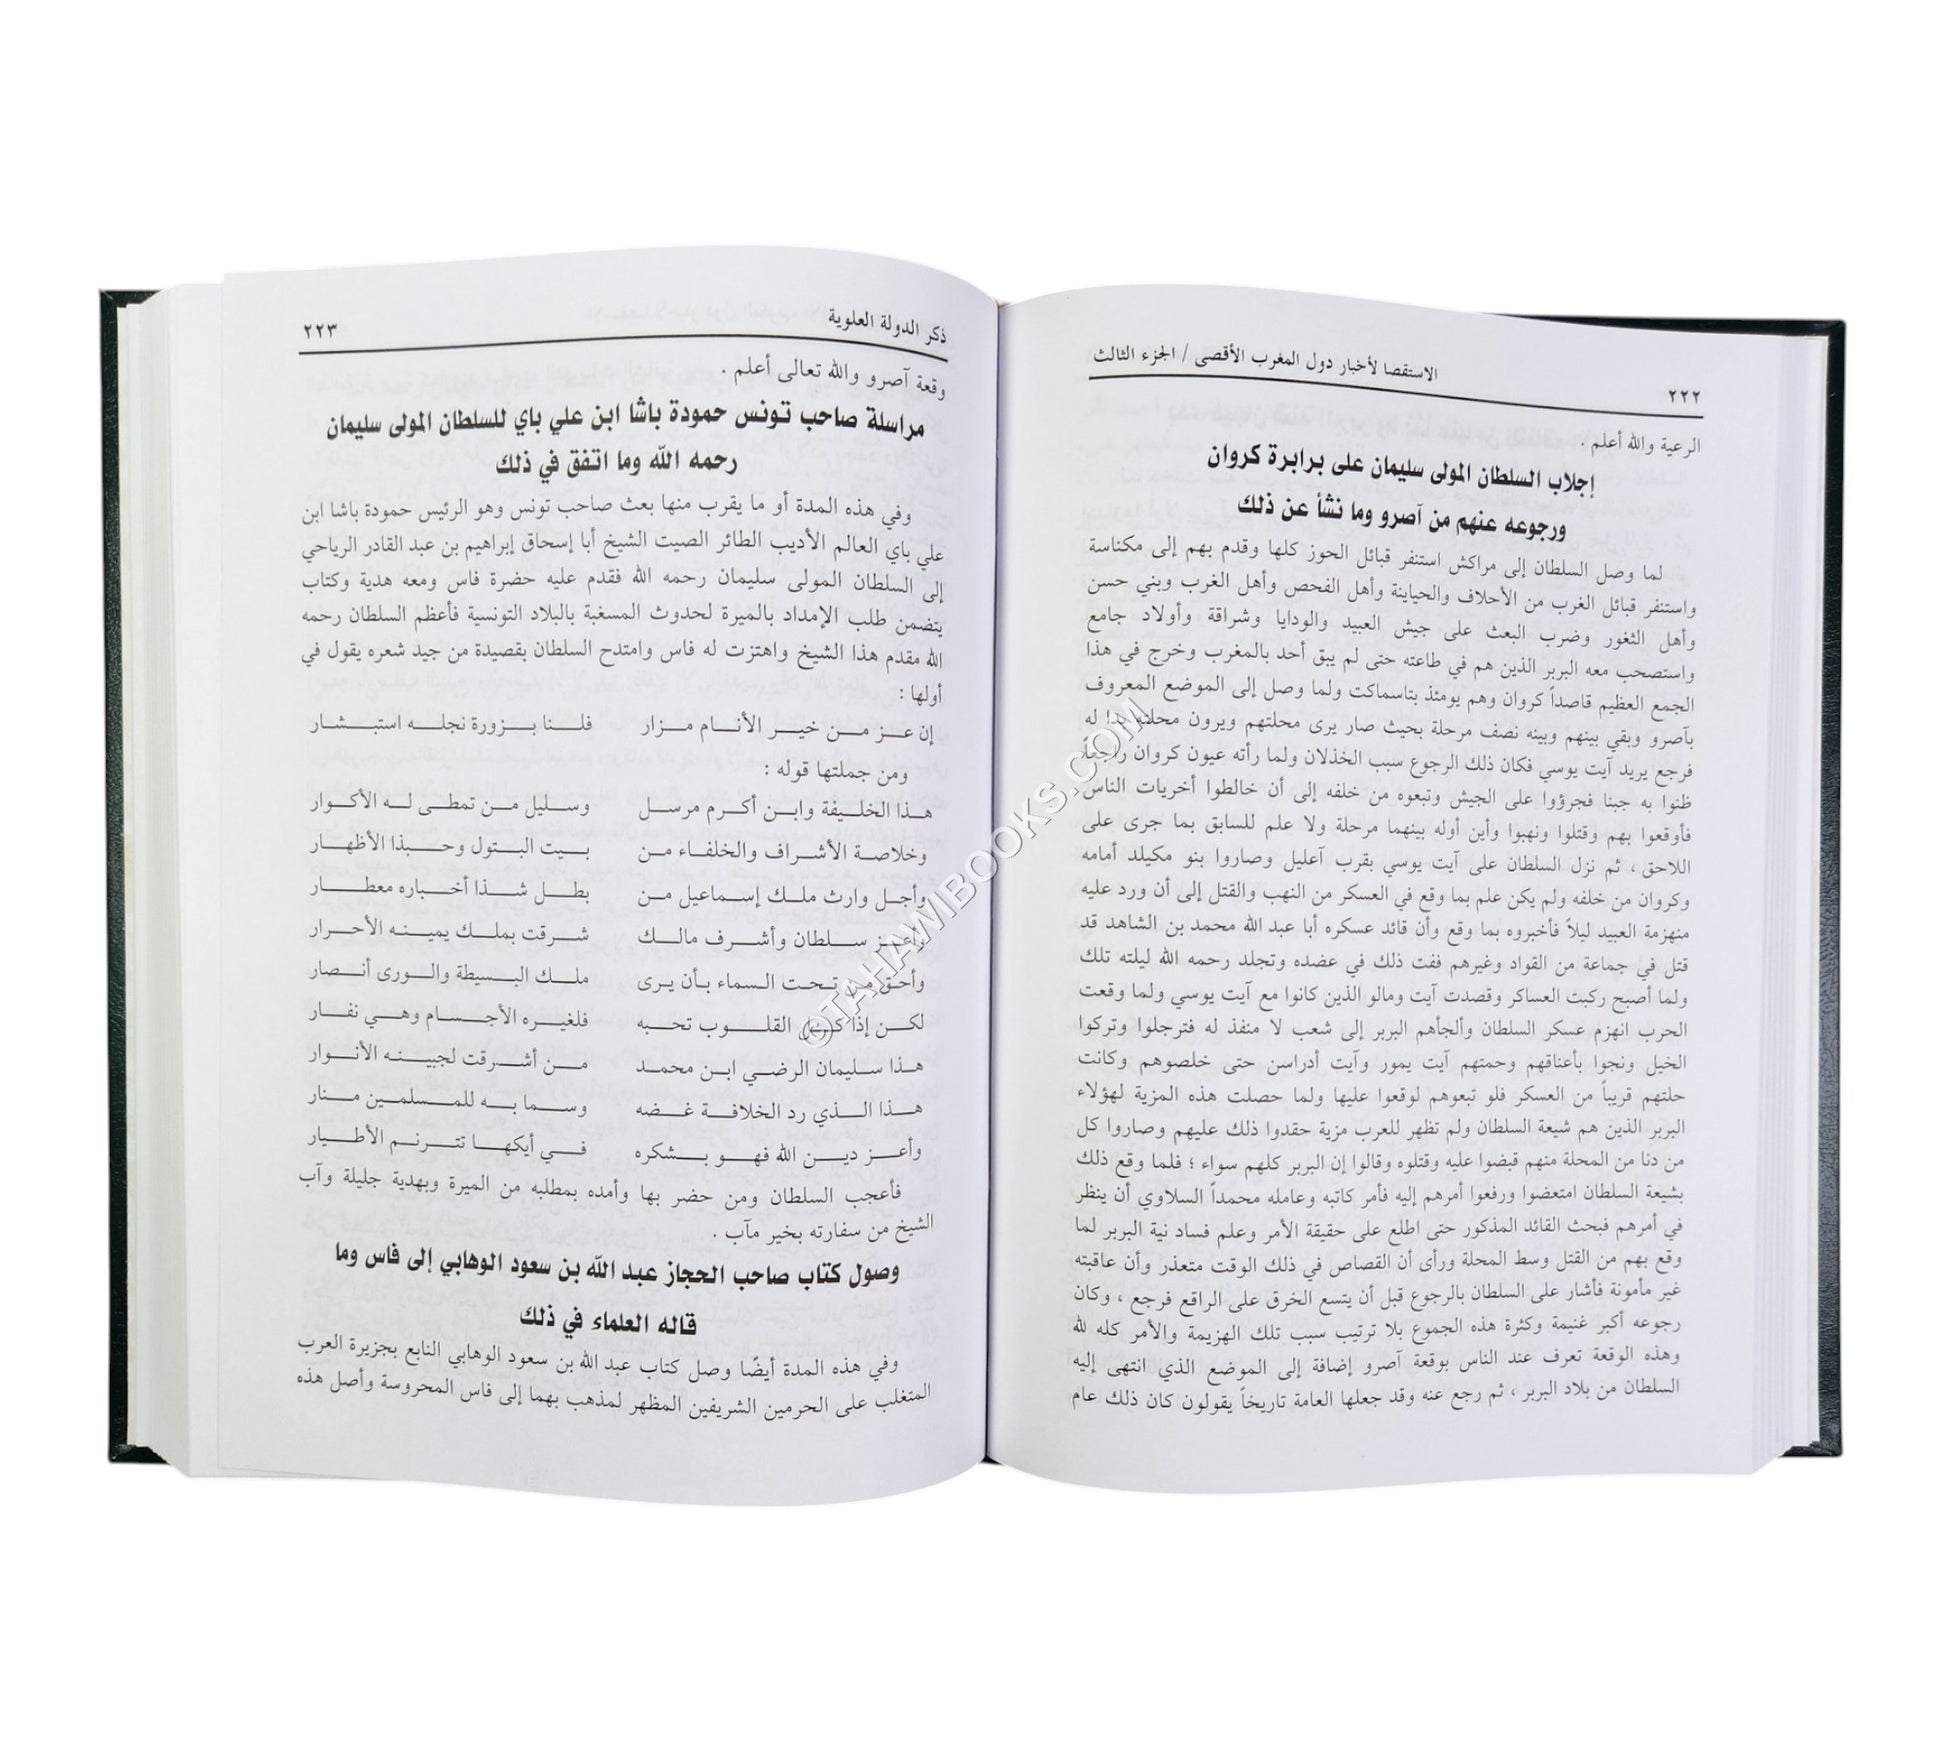 ٢٢٢
الاستقصا لأخبار دول المغرب الأقصى / الجزء الثالث
الرعية والله أعلم .
إجلاب السلطان المولى سليمان على برابرة كروان
ورجوعه عنهم من آصرو وما نشأ عن ذلك
لما وصل السلطان إلى مراكش استنفر قبائل الحوز كلها وقدم بهم إلى مكناسة
واستنفر قبائل الغرب من الأحلاف والحياينة وأهل الفحص وأهل الغرب وبني حسن
وأهل الثغور وضرب البعث على جيش العبيد والودايا وشراقة وأولاد جامع
واستصحب معه البربر الذين هم في طاعته حتى لم يبق أحد بالمغرب وخرج في هذا
الجمع العظيم قاصداً كروان وهم يومئذ بتاسماكت ولما وصل إلى الموضع المعروف
بآصرو وبقي بينهم وبينه نصف مرحلة بحيث صار يرى محلتهم ويرون محلته بدا له
فرجع يريد آيت يوسي فكان ذلك الرجوع سبب الخذلان ولما رأته عيون كروان راجعاً
ظنوا به جبنا فجرؤوا على الجيش وتبعوه من خلفه إلى أن خالطوا أخريات الناس
فأوقعوا بهم وقتلوا ونهبوا وأين أوله بينهما مرحلة ولا علم للسابق بما جرى على
اللاحق ، ثم نزل السلطان على آيت يوسي بقرب آعليل وصاروا بنو مكيلد أمامه
وكروان من خلفه ولم يكن علم بما وقع في العسكر من النهب والقتل إلى أن ورد عليه
منهزمة العبيد ليلاً فأخبروه بما وقع وأن قائد عسكره أبا عبد الله محمد بن الشاهد قد
قتل في جماعة من القواد وغيرهم ففت ذلك في عضده وتجلد رحمه الله ليلته تلك
ولما أصبح ركبت العساكر وقصدت آيت ومالو الذين كانوا مع آيت يوسي ولما وقعت
الحرب انهزم عسكر السلطان وألجأهم البربر إلى شعب لا منفذ له فترجلوا وتركوا
الخيل ونجوا بأعناقهم وحمتهم آيت يمور وآيت أدراسن حتى خلصوهم وكانت
حلتهم قريباً من العسكر فلو تبعوهم لوقعوا عليها ولما حصلت هذه المزية لهؤلاء
البربر الذين هم شيعة السلطان ولم تظهر للعرب مزية حقدوا ذلك عليهم وصاروا كل
من دنا من المحلة منهم قبضوا عليه وقتلوه وقالوا إن البربر كلهم سواء ؛ فلما وقع ذلك
بشيعة السلطان امتعضوا ورفعوا أمرهم إليه فأمر كاتبه وعامله محمداً السلاوي أن ينظر
في أمرهم فبحث القائد المذكور حتى اطلع على حقيقة الأمر وعلم فساد نية البربر لما
وقع بهم من القتل وسط المحلة ورأى أن القصاص في ذلك الوقت متعذر وأن عاقبته
غير مأمونة فأشار على السلطان بالرجوع قبل أن يتسع الخرق على الراقع فرجع ، وكان
رجوعه أكبر غنيمة وكثرة هذه الجموع بلا ترتيب سبب تلك الهزيمة والأمر كله لله
وهذه الوقعة تعرف عند الناس بوقعة آصرو إضافة إلى الموضع الذي انتهى إليه
السلطان من بلاد البربر ، ثم رجع عنه وقد جعلها العامة تاريخاً يقولون كان ذلك عام
ذكر الدولة العلوية
٢٢٣
وقعة آصرو والله تعالى أعلم .
مراسلة صاحب تونس حمودة باشا ابن علي باي للسلطان المولى سليمان
رحمه الله وما اتفق في ذلك
وفي هذه المدة أو ما يقرب منها بعث صاحب تونس وهو الرئيس حمودة باشا ابن
علي باي العالم الأديب الطائر الصيت الشيخ أبا إسحاق إبراهيم بن عبد القادر الرياحي
إلى السلطان المولى سليمان رحمه الله فقدم عليه حضرة فاس ومعه هدية وكتاب
يتضمن طلب الإمداد بالميرة لحدوث المسغبة بالبلاد التونسية فأعظم السلطان رحمه
الله مقدم هذا الشيخ واهتزت له فاس وامتدح السلطان بقصيدة من جيد شعره يقول في
أولها :
إن عز من خير الأنام مزار فلنا بزورة نجله استبشار
ومن جملتها قوله :
هذا الخليفة وابن أكرم مرسل وسليل من تمطى له الأكوار
وخلاصة الأشراف والخلفاء من بيت البتول وحبذا الأظهار
وأجل وارث ملك إسماعيل من بطل شذا أخباره معطار
وأعز سلطان وأشرف مالك شرقت بملك يمينه الأحرار
وأحق من تحت السماء بأن يرى ملك البسيطة والورى أنصار
لكن إذا كل القلوب تحبه فلغيره الأجسام وهي نفار
هذا سليمان الرضي ابن محمد من أشرقت لجبينه الأنوار
هذا الذي رد الخلافة غضه وسما به للمسلمين منار
وأعز دين الله فهو بشكره في أيكها تترنم الأطيار
فأعجب السلطان ومن حضر بها وأمده بمطلبه من الميرة وبهدية جليلة وآب
الشيخ من سفارته بخير مآب .
وصول كتاب صاحب الحجاز عبد الله بن سعود الوهابي إلى فاس وما
قاله العلماء في ذلك
وفي هذه المدة أيضًا وصل كتاب عبد الله بن سعود الوهابي النابع بجزيرة العرب
المتغلب على الحرمين الشريفين المظهر لمذهب بهما إلى فاس المحروسة وأصل هذه
©TAHAWIBOOKS.COM